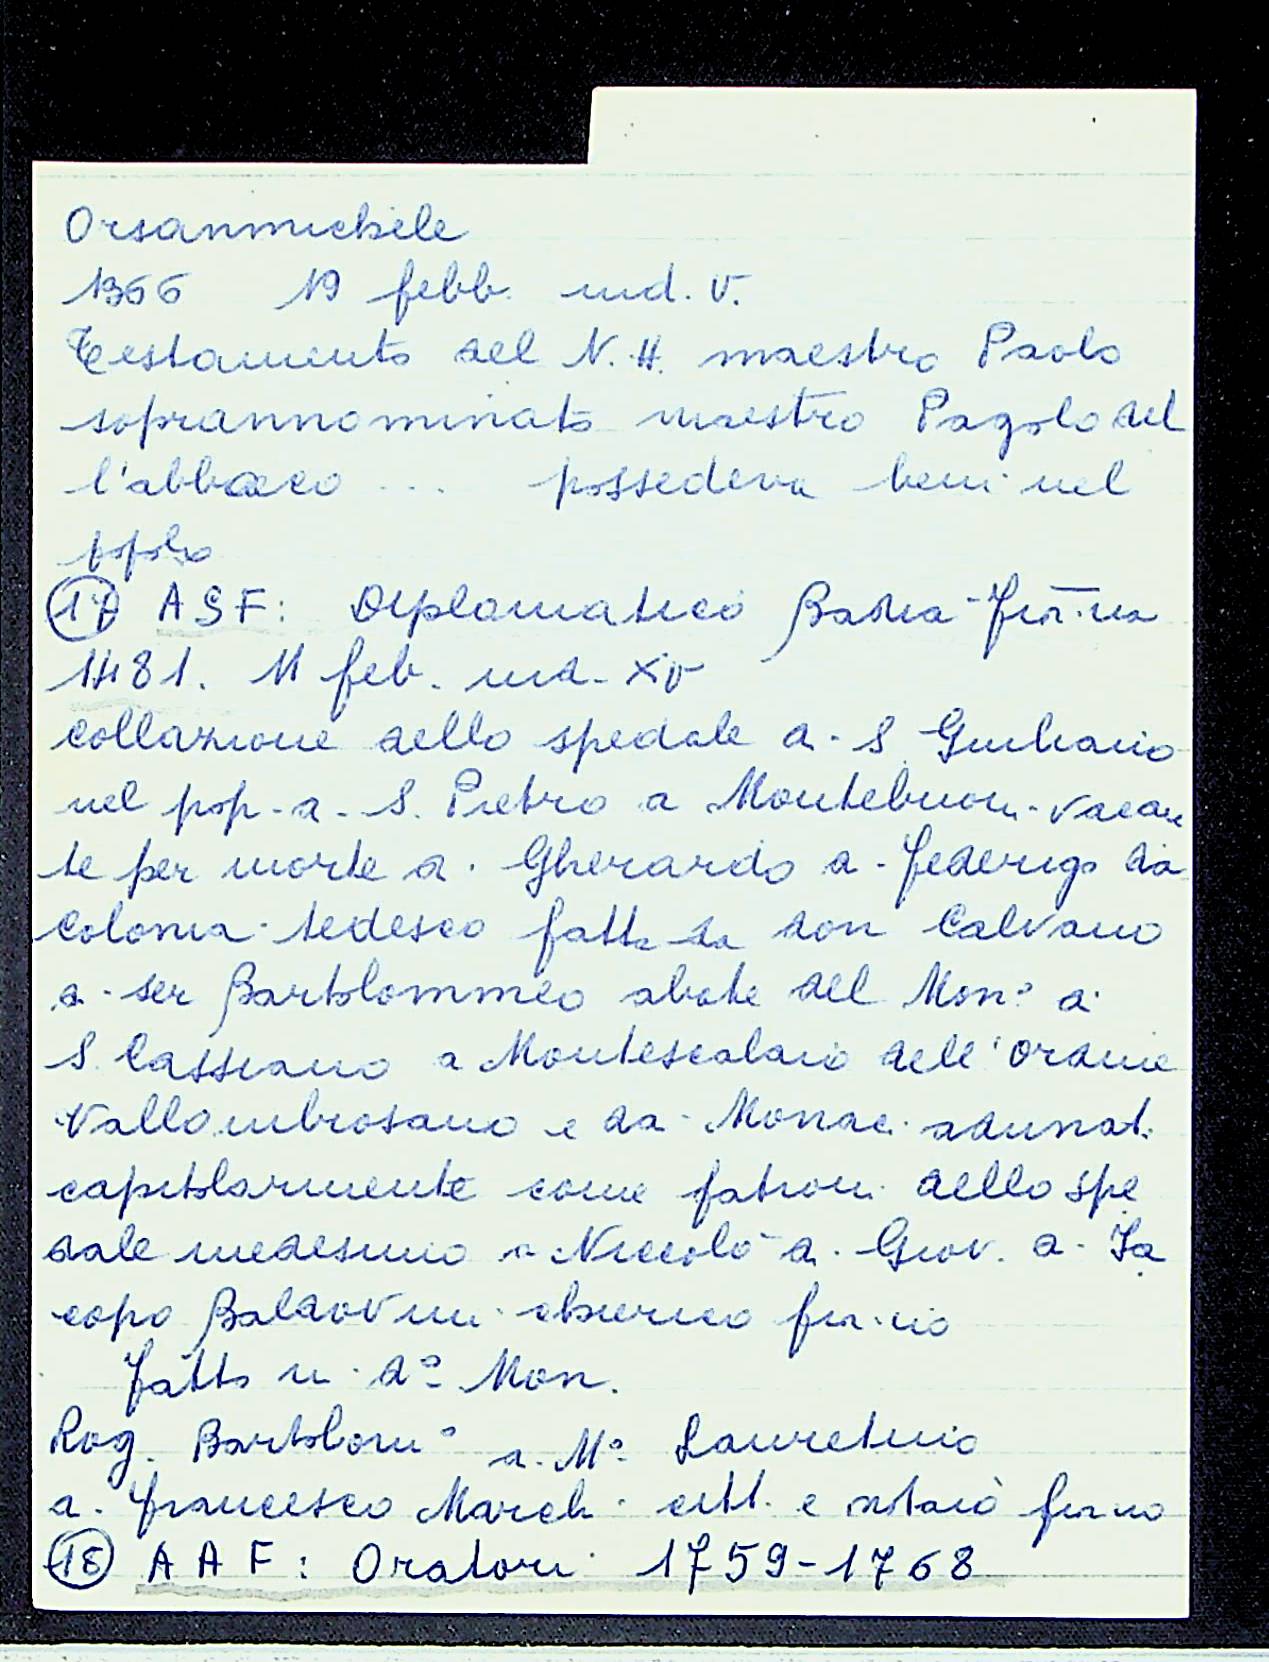 Orsanmichele
1366 19 febb. ind. V.
Testamento del N. H. maestro Paolo
soprannominato maestro Pagolo del
l'abbaco ... possedeva beni nel
popolo
17 ASF: Diplomatico Badia Fior.na
1481. 11 feb. ind. XV
Collazione dello spedale d. S. Giuliano
nel pop. d. S. Pietro a Montebuoni vacan
te per morte d. Gherardo d. Federigo da
Colonia tedesco fatta da don Calvano
d. ser Bartolommeo abate del Mon.o d.
S. Cassiano a Montescalaio dell'ordine
Vallombrosano e da Monaci adunati
capitolarmente come patroni dello spe
dale medesimo a Niccolò d. Giov. d. Ja
copo Baldovini chierico fior.no
Fatto in d.o Mon.
Rog. Bartolom.o d. M.o Laurentino
d. Francesco March. citt. e notaio fior.no
18 AAF: Oratori 1759-1768